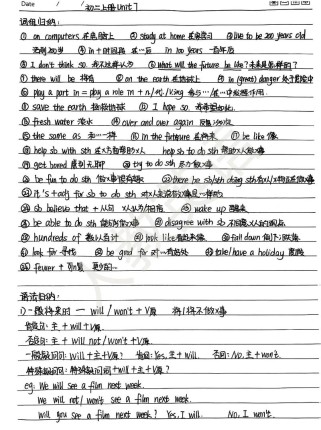 Date / /
初二上册 Unit 7
词组归纳:
① on computers 在电脑上 ② study at home 在家学习 ③ live to be 200 years old
活到200岁 ④ in + 时间段 在…后 in 100 years 一百年后
⑤ I don't think so. 我不这样认为 ⑥ What will the future be like? 未来是怎样的?
⑦ there will be 将有 ⑧ on the earth 在地球上 ⑨ in (great) danger 处于危险中
⑩ play a part in = play a role in + n/doing 参与…/在…中起作用
⑪ save the earth 拯救地球 ⑫ I hope so. 我希望如此.
⑬ fresh water 淡水 ⑭ over and over again 反复多次
⑮ the same as 和…一样 ⑯ in the future 在未来 ⑰ be like 像
⑱ help sb with sth 在某方面帮助某人 help sb to do sth 帮助某人做某事
⑲ get bored 感到无聊 ⑳ try to do sth 尽力做某事
be fun to do sth 做某事很有趣 there be sb/sth doing sth 有某人/某物正在做某事
it's + adj for sb to do sth 对某人来说做某事是…样的
believe that + 从句 wake up 醒来
be able to do sth 能够做某事 disagree with sb 不同意某人的观点
hundreds of 数以百计 look like 看起来像 fall down 倒下;跌落
look for 寻找 be good for 对…有好处 take/have a holiday 度假
fewer + 可n复 更少的…
语法归纳:
1) 一般将来时 — will / won't + V原 将/将不做某事
肯定句: 主 + will + V原
否定句: 主 + will not / won't + V原
一般疑问句: Will + 主 + V原? 肯回: Yes, 主 + will. 否回: No, 主 + won't.
特殊疑问句: 特殊疑问词 + will + 主 + V原?
eg: We will see a film next week.
We will not / won't see a film next week.
Will you see a film next week? Yes, I will. No, I won't.